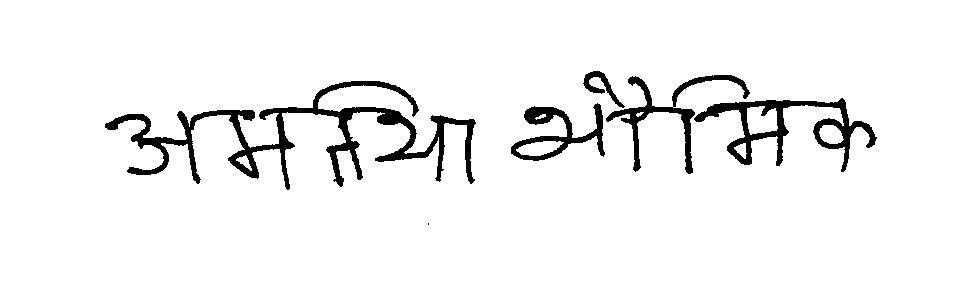 अमतिया भौमिक